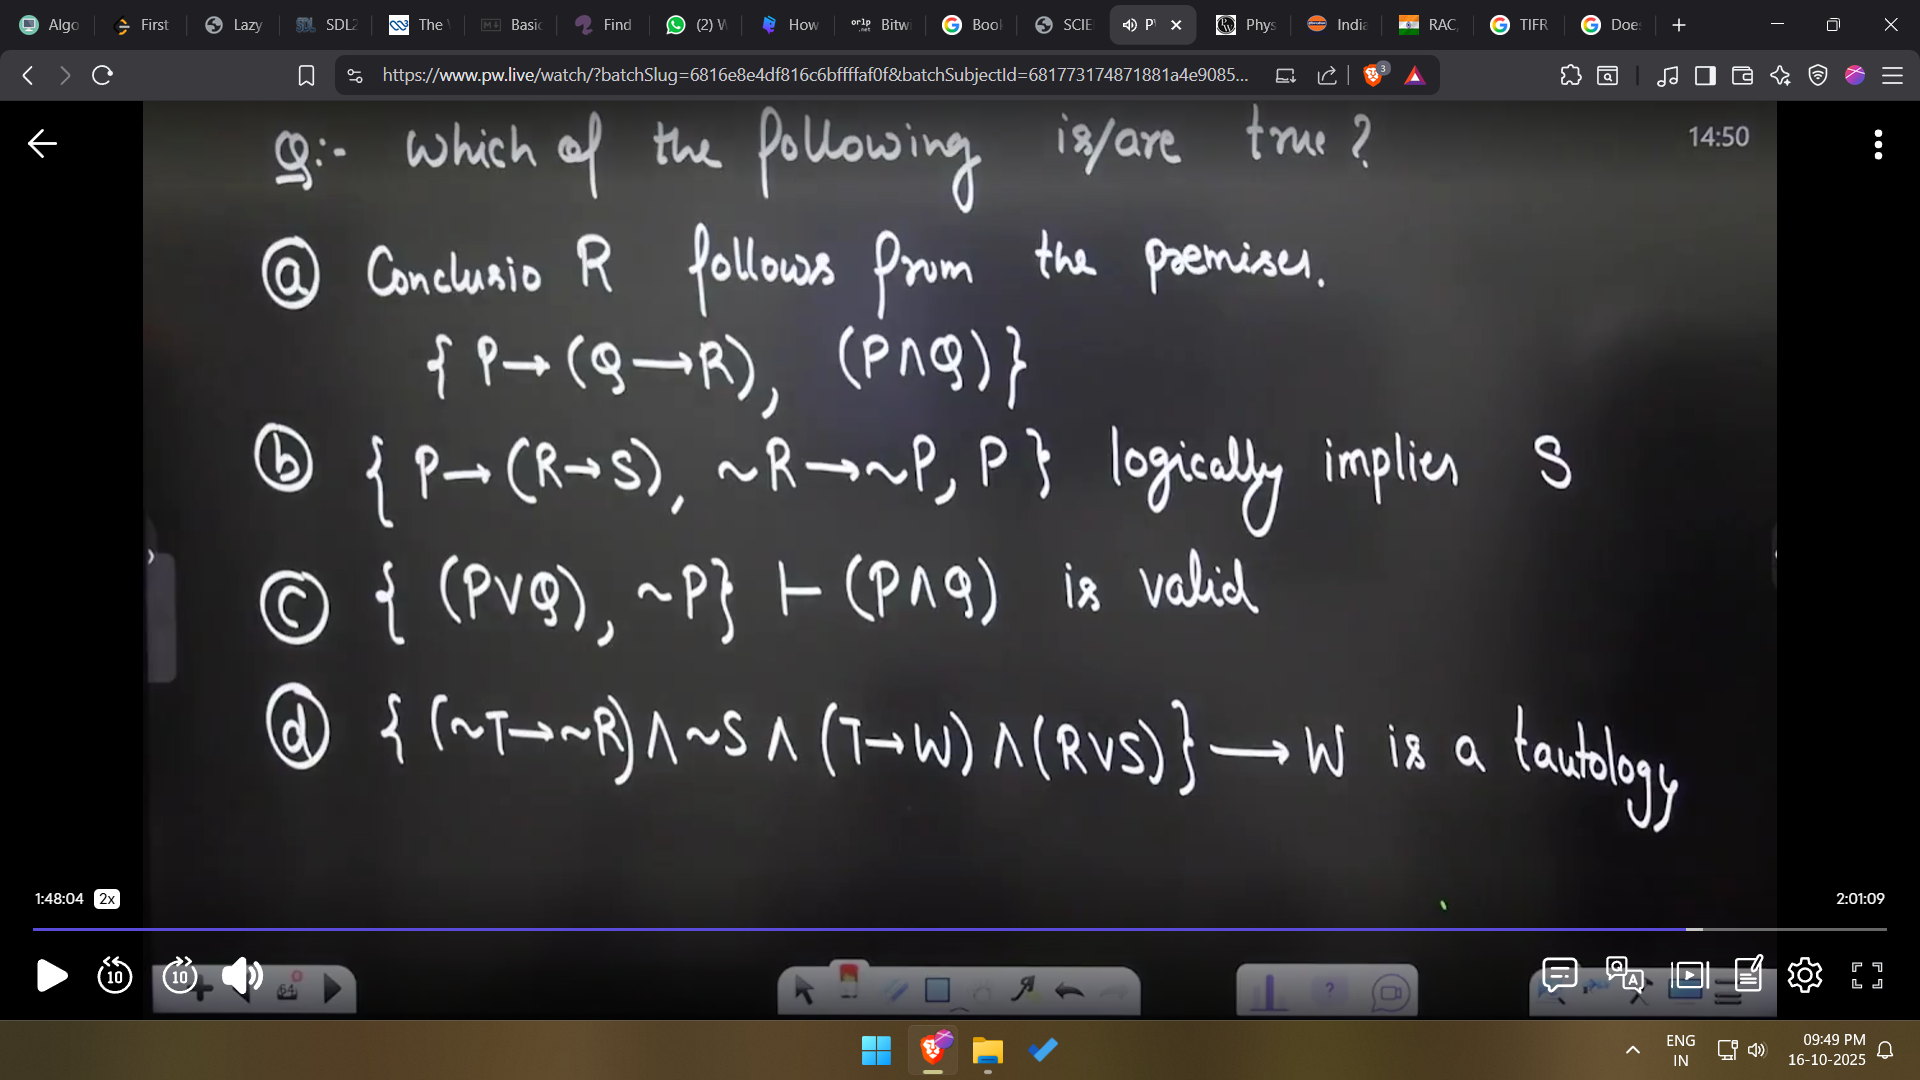 Algo First Lazy SDL2 The Basic Find (2) W How Bitwi Book SCIE P Phys India RAC, TIFR Does
https://www.pw.live/watch/?batchSlug=6816e8e4df816c6bffffaf0f&batchSubjectId=681773174871881a4e9085... 3
Q:- Which of the following is/are true? 14:50
ⓐ Conclusio R follows from the premises.
{ P→(Q→R), (P∧Q)}
ⓑ { P→(R→S), ~R→~P, P } logically implies S
ⓒ { (P∨Q), ~P} ⊢ (P∧Q) is valid
ⓓ { (~T→~R)∧~S∧(T→W)∧(R∨S)}→W is a tautology
1:48:04 2x 2:01:09
10 10 64
ENG 09:49 PM
IN 16-10-2025